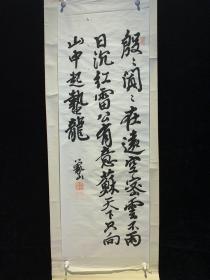 殷〻闐〻在遠空密雲不雨
日沉紅雷公有意蘇天下只向
山中起蟄龍